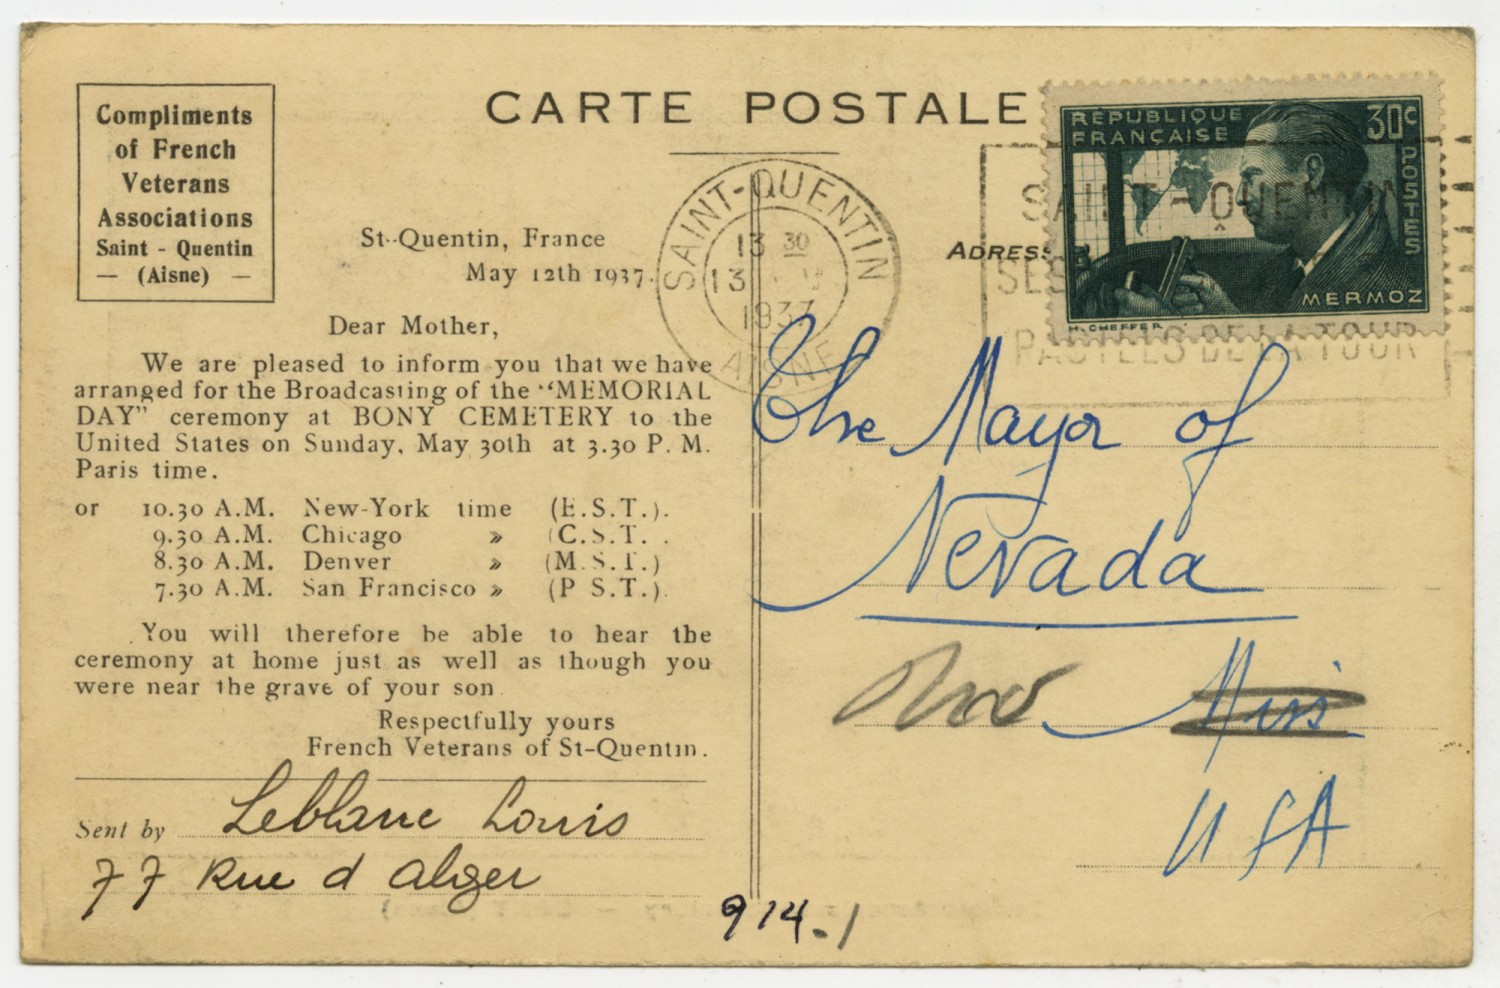 CARTE POSTALE
Compliments
of French
Veterans
Associations
Saint - Quentin
— (Aisne) —
St-Quentin, France
May 12th 1937.
Dear Mother,
We are pleased to inform you that we have
arranged for the Broadcasting of the “MEMORIAL
DAY” ceremony at BONY CEMETERY to the
United States on Sunday, May 30th at 3.30 P. M.
Paris time.
or 10.30 A.M. New-York time (E.S.T.).
9.30 A.M. Chicago » (C.S.T. .
8.30 A.M. Denver » (M.S.T.)
7.30 A.M. San Francisco » (P S.T.).
You will therefore be able to hear the
ceremony at home just as well as though you
were near the grave of your son.
Respectfully yours
French Veterans of St-Quentin.
Sent by Leblanc Louis
77 Rue d Alger
914-1
SAINT-QUENTIN
13 30
13
1937
AISNE
RÉPUBLIQUE
FRANÇAISE
30c
POSTES
MERMOZ
H. CHEFFER
SAINT-QUENTIN
PASTELS DE LA TOUR
ADRESS
The Mayor of
Nevada
Miss
USA